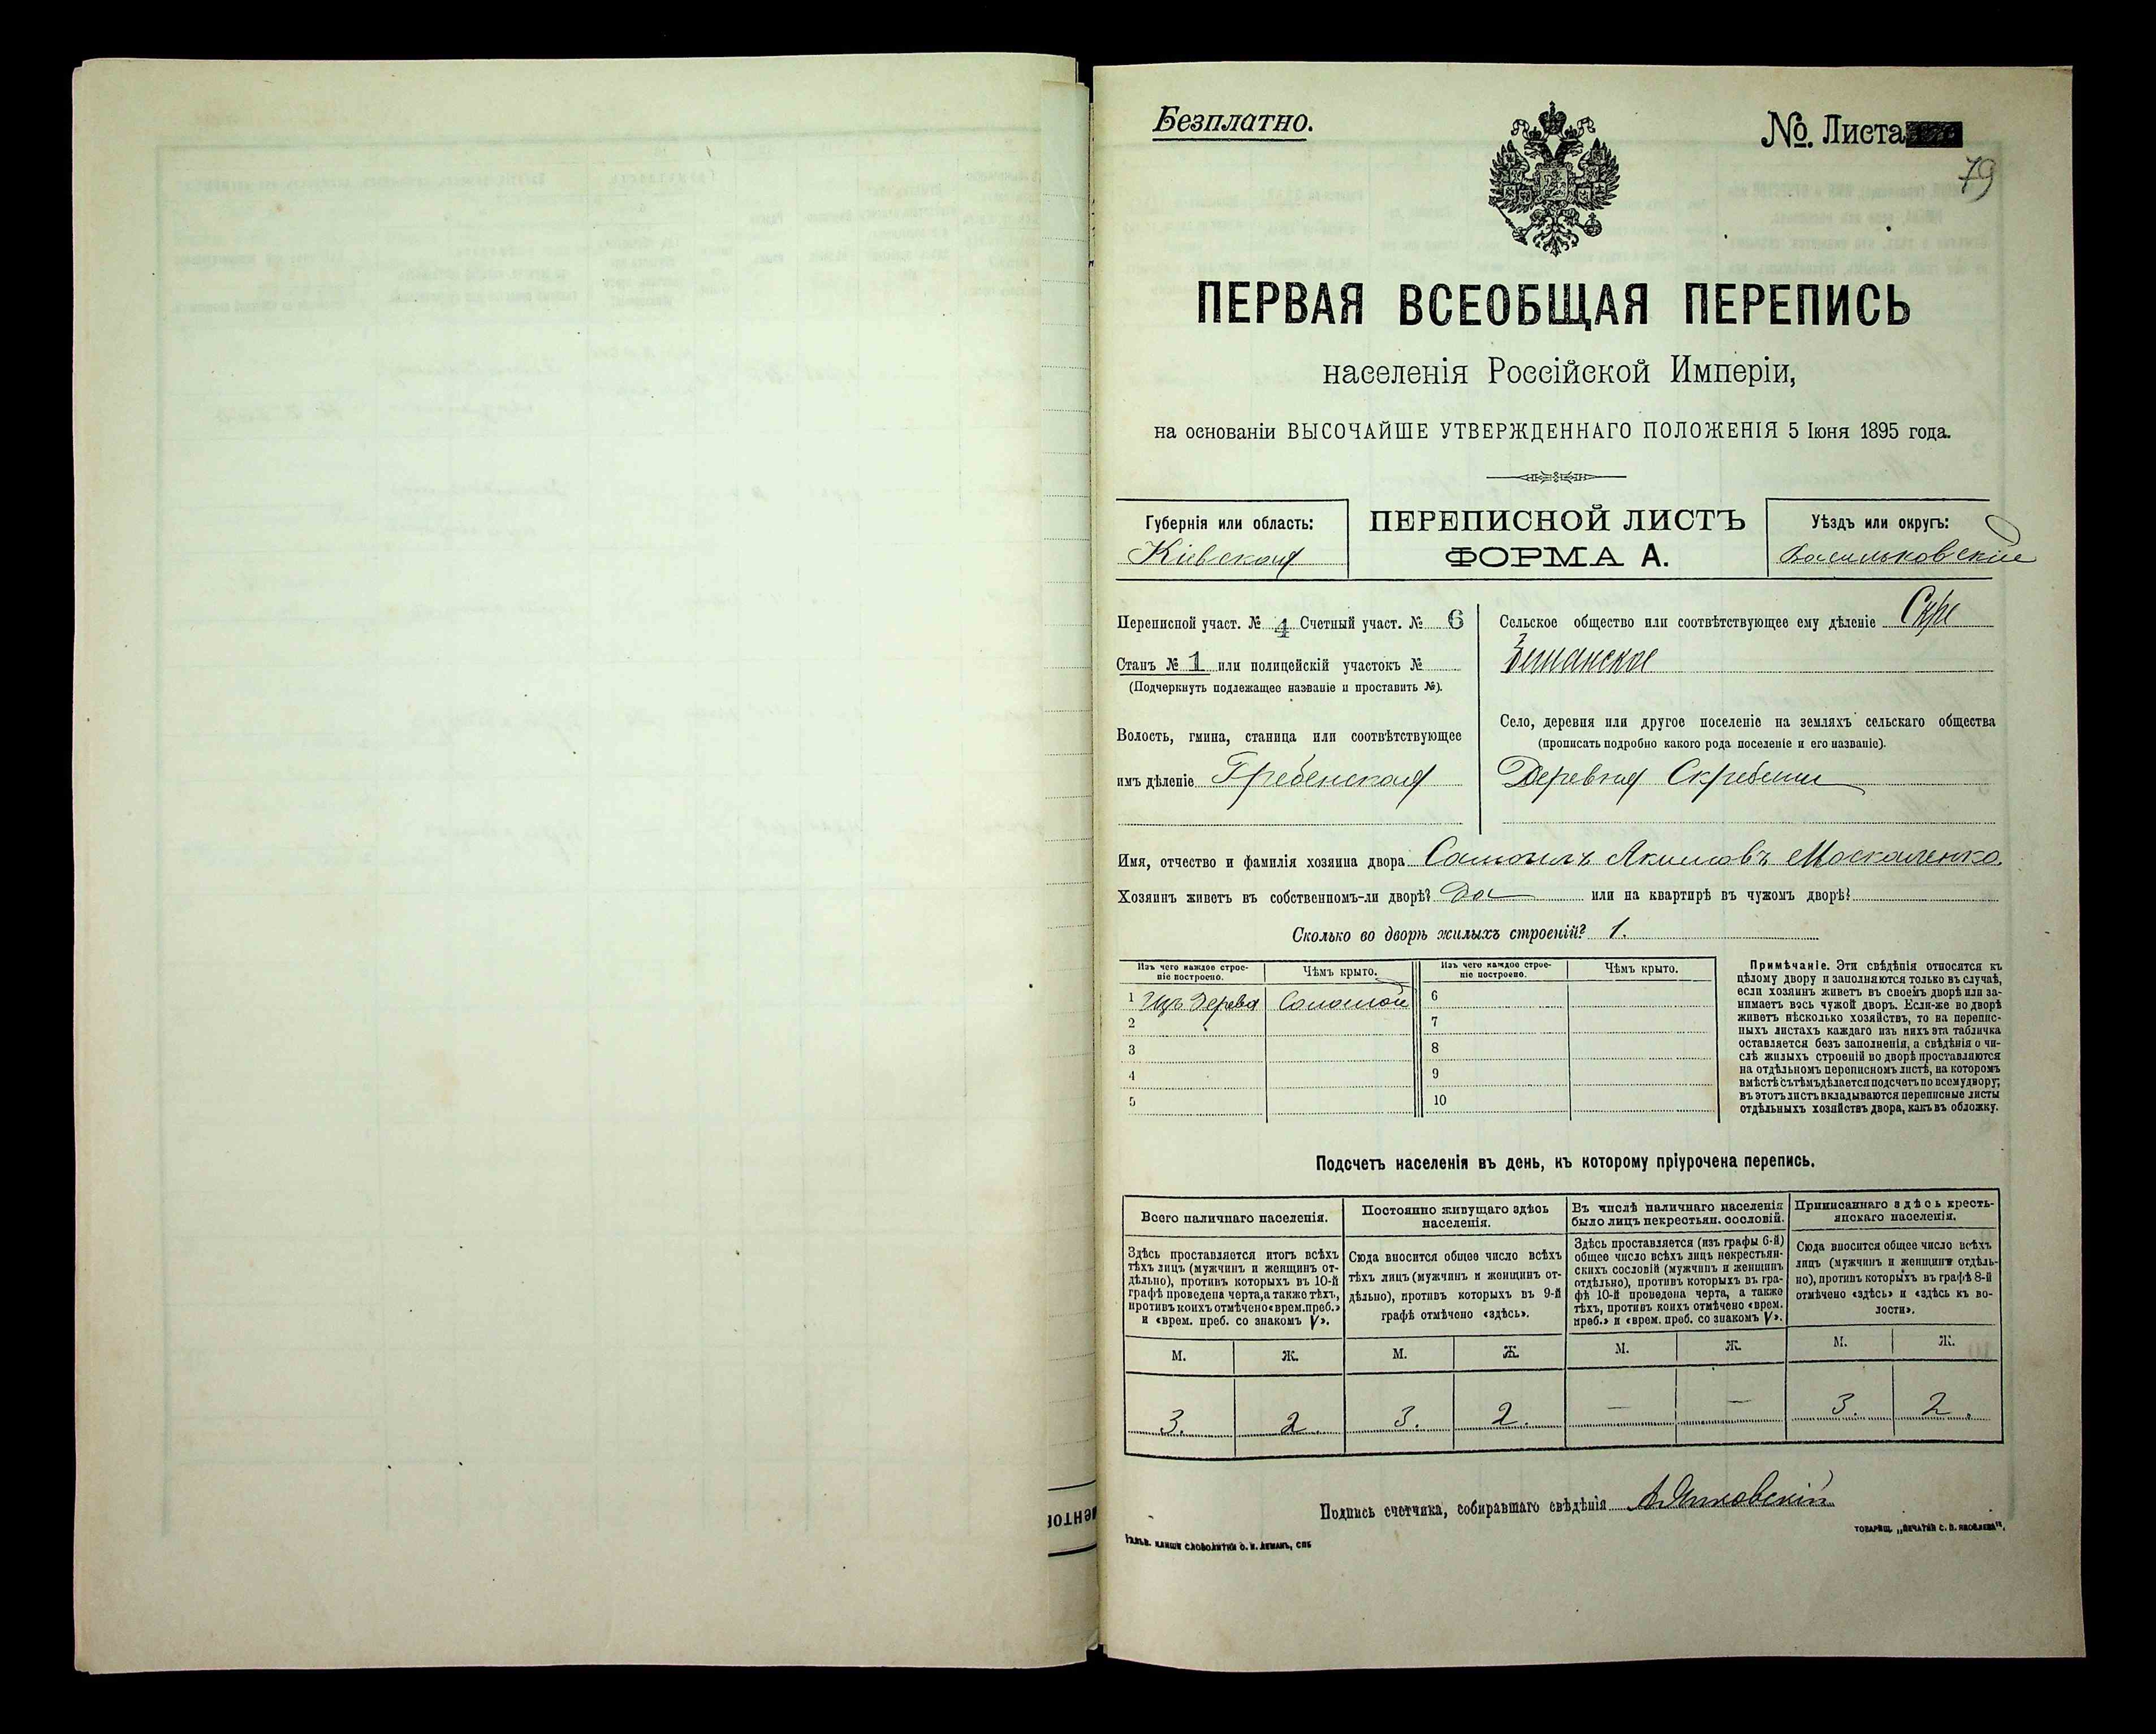 Безплатно.
№. Листа
79
ПЕРВАЯ ВСЕОБЩАЯ ПЕРЕПИСЬ
населенія Россійской Имперіи,
на основаніи ВЫСОЧАЙШЕ УТВЕРЖДЕННАГО ПОЛОЖЕНІЯ 5 Іюня 1895 года.
Губернія или область:
Кіевская
ПЕРЕПИСНОЙ ЛИСТЪ
ФОРМА А.
Уѣздъ или округъ:
Васильковскій
Переписной участ. № 4 Счетный участ. № 6
Станъ № 1 или полицейскій участокъ №
(Подчеркнуть подлежащее названіе и проставить №).
Волость, гмина, станица или соотвѣтствующее
имъ дѣленіе Гребенская
Сельское общество или соотвѣтствующее ему дѣленіе Скре
Село, деревня или другое поселеніе на земляхъ сельскаго общества
(прописать подробно какого рода поселеніе и его названіе).
Деревня Скребеши
Имя, отчество и фамилія хозяина двора Самоилъ Акимовъ Москаленко.
Хозяинъ живетъ въ собственномъ-ли дворѣ? Да или на квартирѣ въ чужомъ дворѣ?
Сколько во дворѣ жилыхъ строеній? 1.
Изъ чего каждое строе-
ніе построено.
Чѣмъ крыто.
Изъ чего каждое строе-
ніе построено.
Чѣмъ крыто.
1 Изъ дерева Соломой 6
2 7
3 8
4 9
5 10
Примѣчаніе. Эти свѣдѣнія относятся къ
цѣлому двору и заполняются только въ случаѣ,
если хозяинъ живетъ въ своемъ дворѣ или за-
нимаетъ весь чужой дворъ. Если-же во дворѣ
живетъ нѣсколько хозяйствъ, то на перепис-
ныхъ листахъ каждаго изъ нихъ эта табличка
оставляется безъ заполненія, а свѣдѣнія о чи-
слѣ жилыхъ строеній во дворѣ проставляются
на отдѣльномъ переписномъ листѣ, на которомъ
вмѣстѣ съ тѣмъ дѣлается подсчетъ по всему двору;
въ этотъ листъ вкладываются переписные листы
отдѣльныхъ хозяйствъ двора, какъ въ обложку.
Подсчетъ населенія въ день, къ которому пріурочена перепись.
Всего наличнаго населенія.
Здѣсь проставляется итогъ всѣхъ
тѣхъ лицъ (мужчинъ и женщинъ от-
дѣльно), противъ которыхъ въ 10-й
графѣ проведена черта, а также тѣхъ,
противъ коихъ отмѣчено «врем. преб.»
и «врем. преб. со знакомъ V».
Постоянно живущаго здѣсь
населенія.
Сюда вносится общее число всѣхъ
тѣхъ лицъ (мужчинъ и женщинъ от-
дѣльно), противъ которыхъ въ 9-й
графѣ отмѣчено «здѣсь».
Въ числѣ наличнаго населенія
было лицъ некрестьян. сословій.
Здѣсь проставляется (изъ графы 6-й)
общее число всѣхъ лицъ некрестьян-
скихъ сословій (мужчинъ и женщинъ
отдѣльно), противъ которыхъ въ гра-
фѣ 10-й проведена черта, а также
тѣхъ, противъ коихъ отмѣчено «врем.
преб.» и «врем. преб. со знакомъ V».
Приписаннаго здѣсь кресть-
янскаго населенія.
Сюда вносится общее число всѣхъ
лицъ (мужчинъ и женщинъ отдѣль-
но), противъ которыхъ въ графѣ 8-й
отмѣчено «здѣсь» и «здѣсь въ во-
лости».
М. Ж. М. Ж. М. Ж. М. Ж.
3. 2. 3. 2. — — 3. 2.
Подпись счетчика, собиравшаго свѣдѣнія
КЛИШЕ СЛОВОЛИТНИ О. И. ЛЕМАНЪ, СПБ
ТОВАРИЩ. „ПЕЧАТНЯ С. П. ЯКОВЛЕВА".